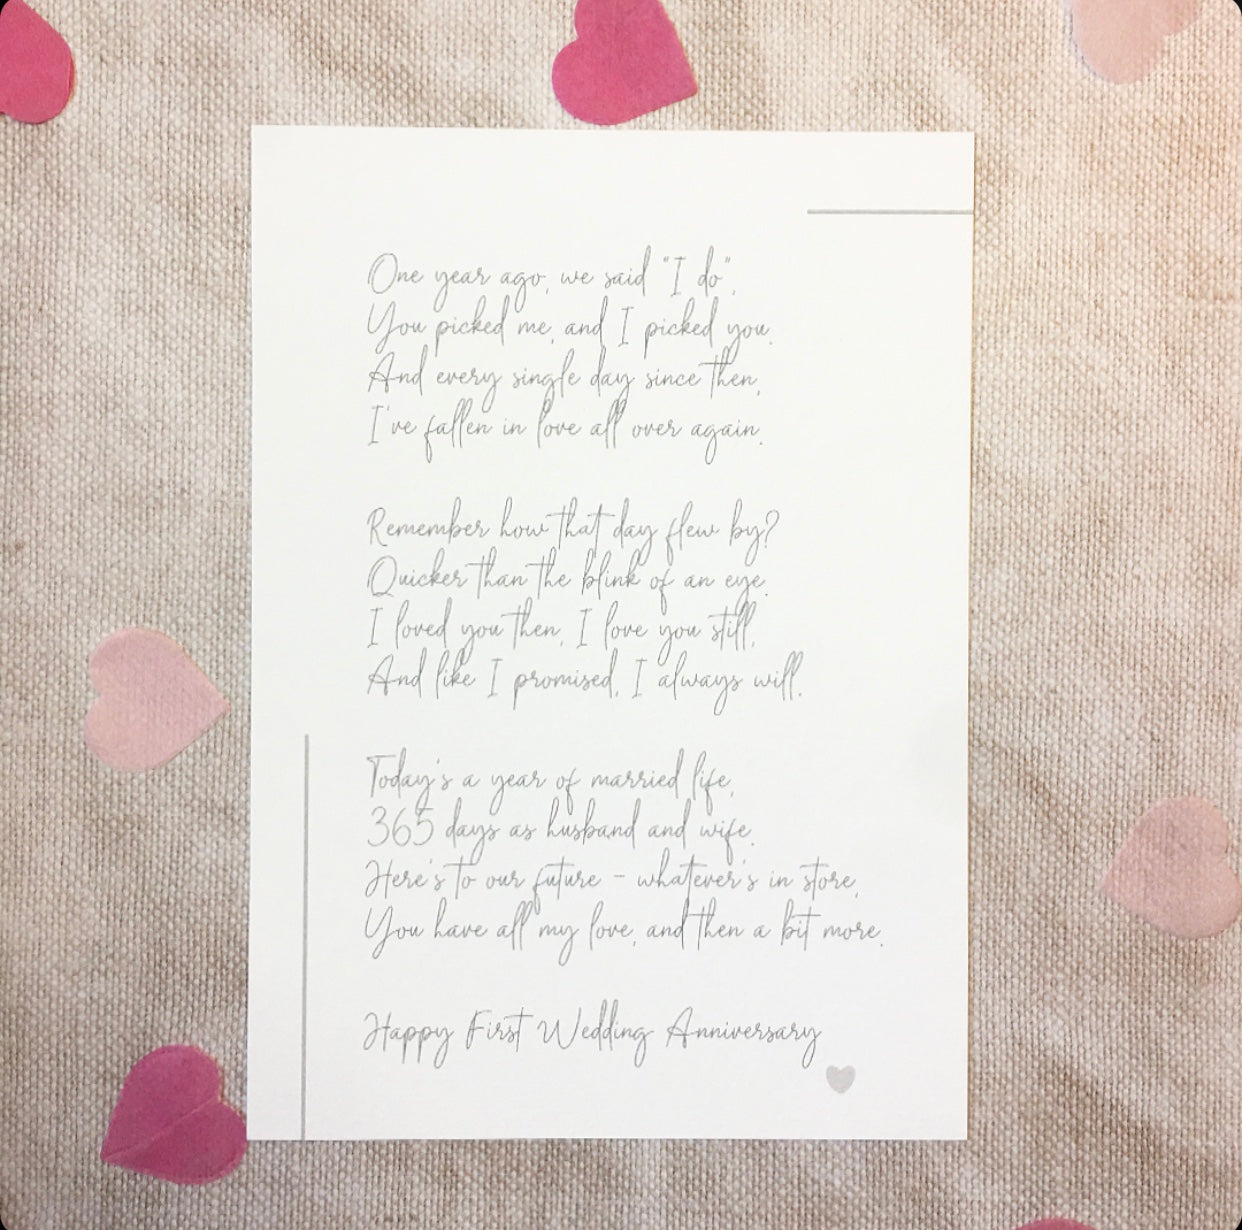 One year ago, we said "I do",
You picked me, and I picked you.
And every single day since then,
I've fallen in love all over again.
Remember how that day flew by?
Quicker than the blink of an eye.
I loved you then, I love you still,
And like I promised, I always will.
Today's a year of married life,
365 days as husband and wife.
Here's to our future - whatever's in store,
You have all my love, and then a bit more.
Happy First Wedding Anniversary